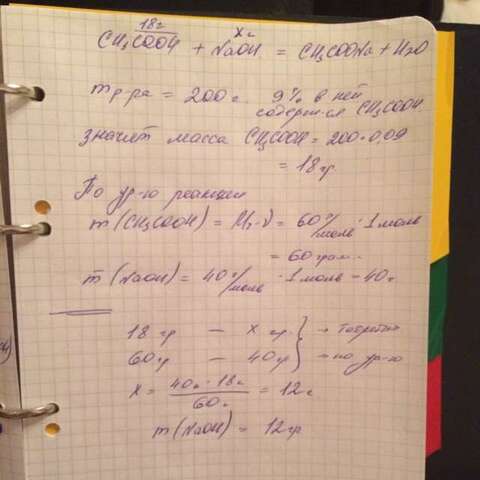 18г x г
CH₃COOH + NaOH = CH₃COONa + H₂O
m р-ра = 200г. 9% в ней
содерж-ся CH₃COOH
значит масса CH₃COOH = 200·0,09
= 18гр
По ур-ю реакции
m (CH₃COOH) = Mr·ν = 60 г/моль · 1 моль
= 60 грам.
m (NaOH) = 40 г/моль · 1 моль = 40г
18 гр — x гр.
60гр — 40гр → по ур-ю
x = 40г · 18г / 60г = 12г
m(NaOH) = 12гр